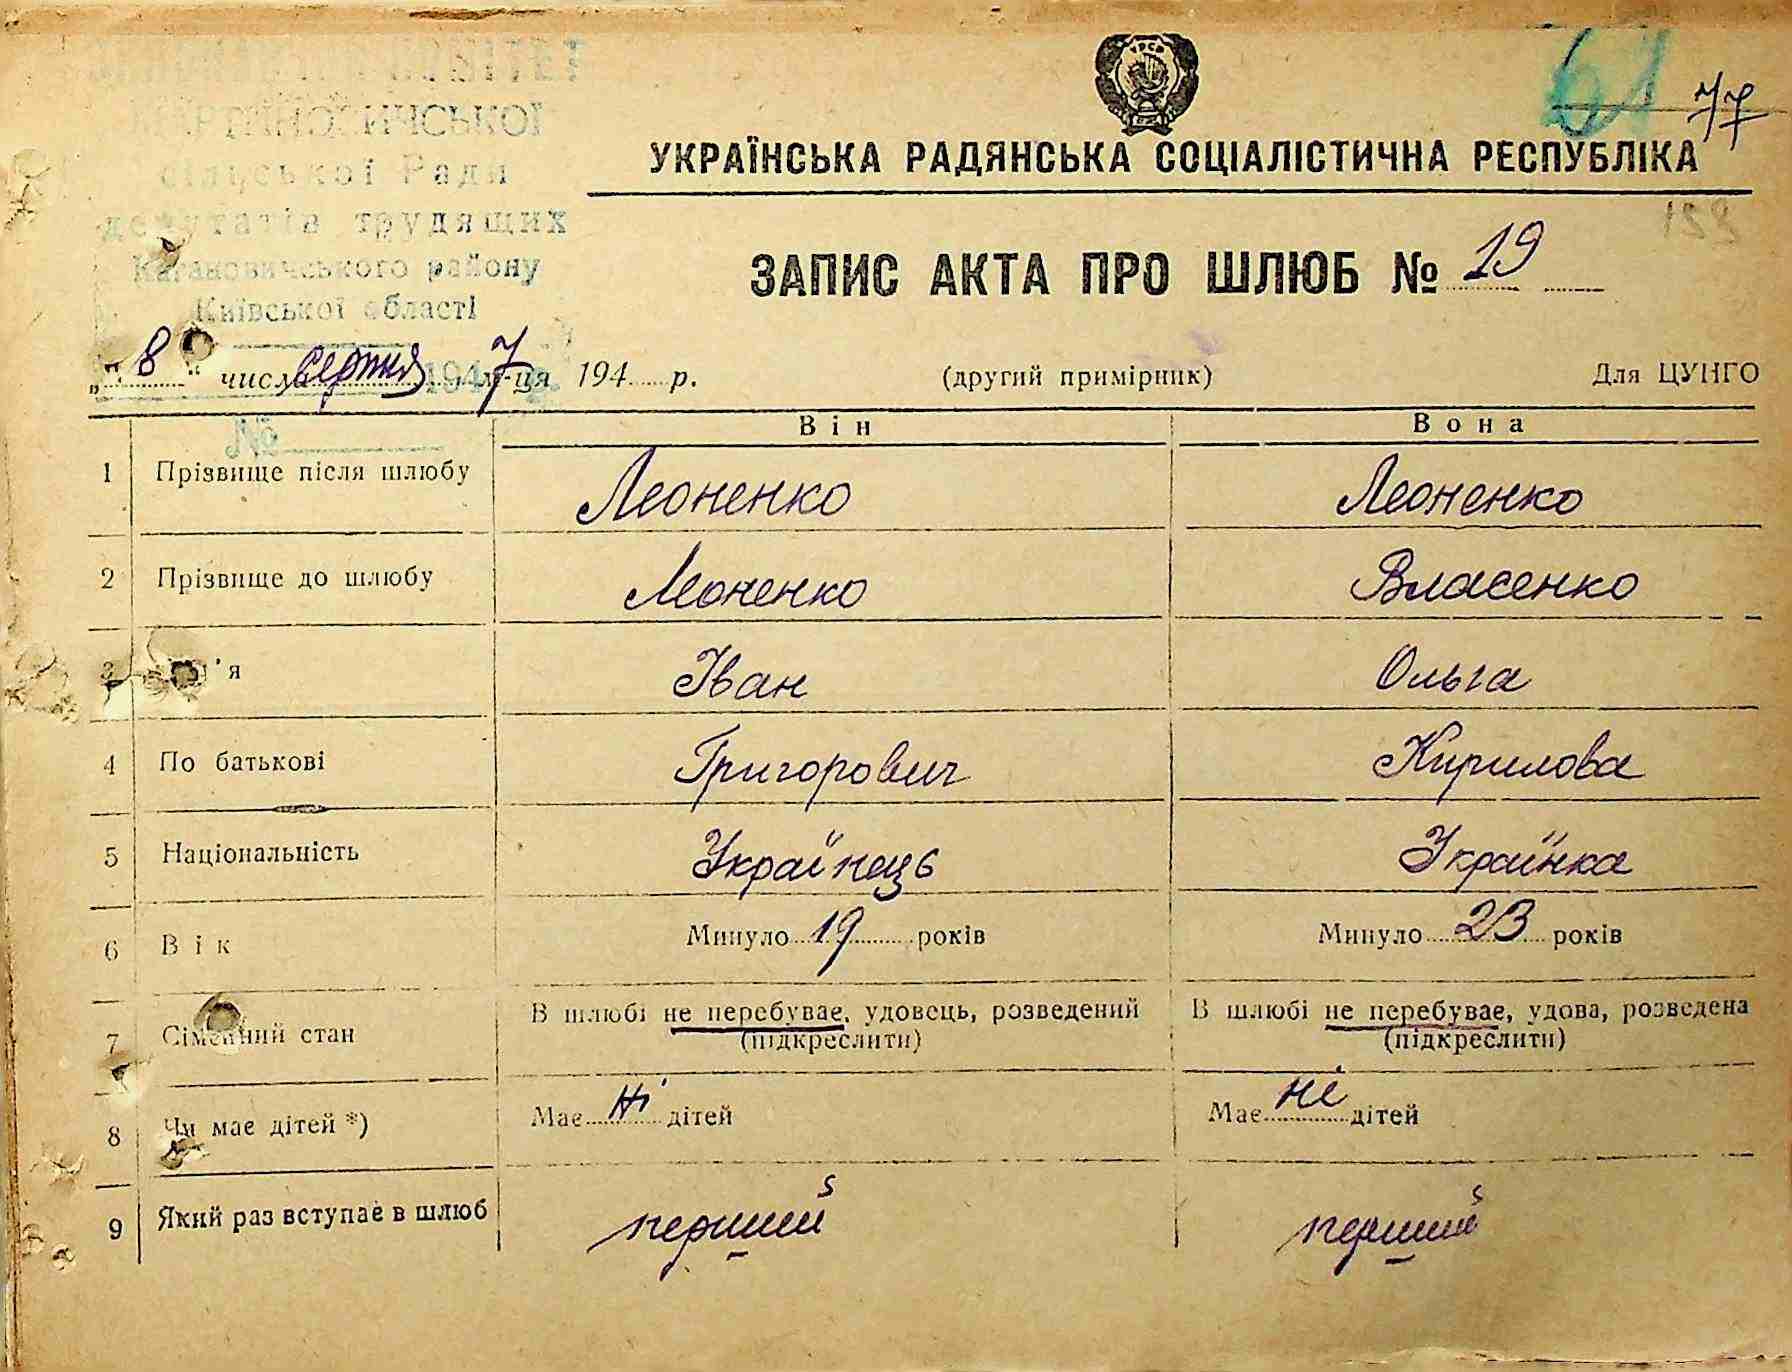 УРСР
61
77
УКРАЇНСЬКА РАДЯНСЬКА СОЦІАЛІСТИЧНА РЕСПУБЛІКА
МАРТИНОВИЧСЬКОЇ
сільської Ради
депутатів трудящих
Кагановичського району
Київської області
ЗАПИС АКТА ПРО ШЛЮБ № 19
„8“ числ серпня 1947 м-ця 194 р.
(другий примірник)
Для ЦУНГО
№
Він
Вона
1 Прізвище після шлюбу Леоненко Леоненко
2 Прізвище до шлюбу Леоненко Власенко
3 'я Іван Ольга
4 По батькові Григорович Кирилова
5 Національність Українець Українка
6 Вік Минуло 19 років Минуло 23 років
7 Сімейний стан В шлюбі не перебуває, удовець, розведений В шлюбі не перебуває, удова, розведена
(підкреслити) (підкреслити)
8 Чи має дітей *) Має ні дітей Має ні дітей
9 Який раз вступає в шлюб перший перший